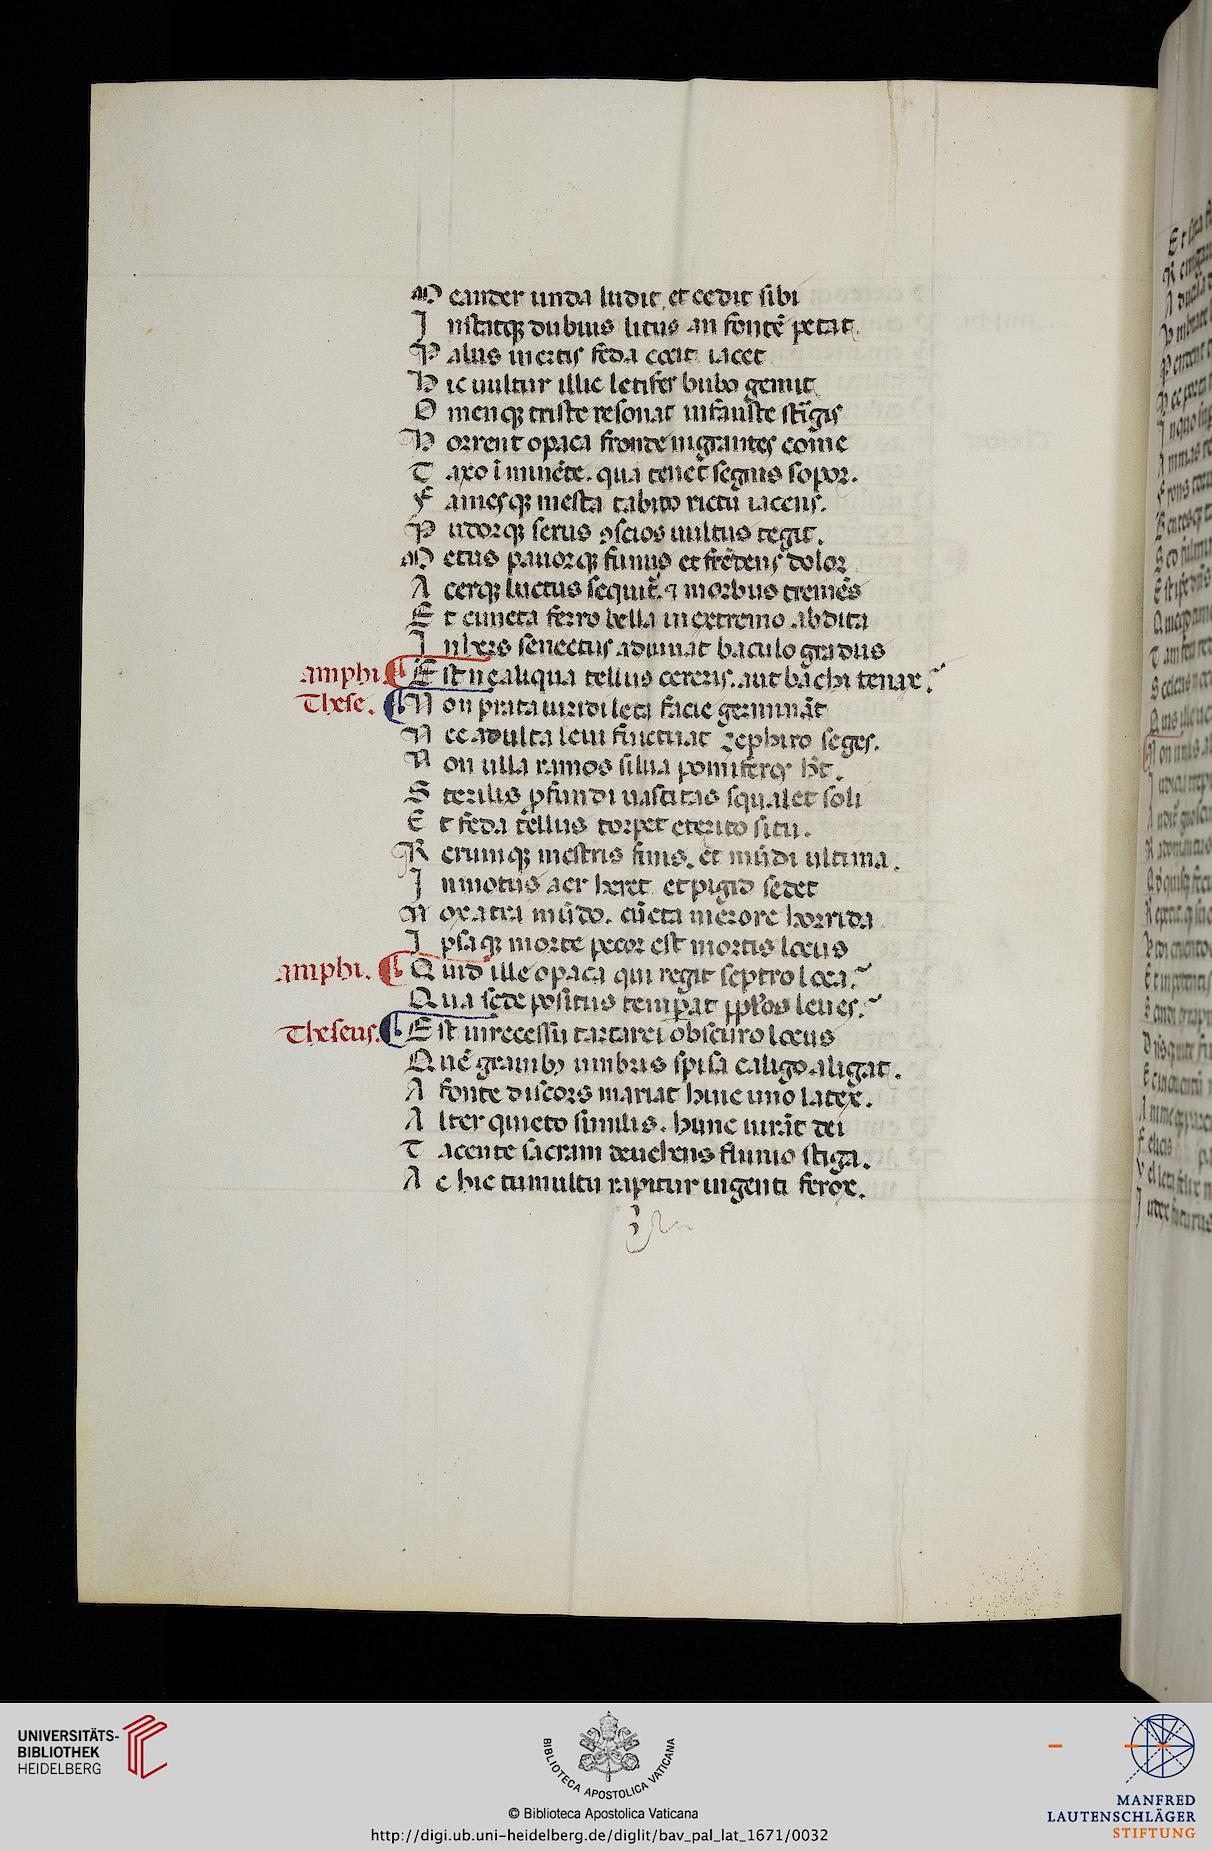 M eander unda ludit. et cedit sibi
I nstatq; dubius litus an fontē petat.
P alus inertis feda cocit iacet
H ic uultur illic letifer bubo gemit
O menq; triste resonat infauste stigis
H orrent opaca fronte nigrantes come
T axo īminēte. qua tenet segnis sopor.
F amesq; mesta tabido rictu iacens.
P udorq; serus ꝯscios uultus tegit.
M etus pauorq; funus et frēdens dolor
A cerq; luctus sequit̄. ⁊ morbus tremēs
E t cuncta ferro bella in extremo abdita
I nhers senectus adiuuat baculo gradus
amphi. E st ne aliqua tellus cereris. aut bachi tenax.
These. N on prata uiridi leta facie germināt
N ec adulta leui fluctuat zephiro seges.
N on ulla ramos silua pomiferos h̄t.
S terilis ꝓfundi uastitas squalet soli
E t feda tellus torpet eterno situ.
R erumq; mestris finis. et mūdi ultima.
I nmotus aer heret. et pigid sedet
N ox atra mūdo. cūcta merore horrida
I psaq; morte peeor est mortis locus
amphi. Q uid ille opaca qui regit septro loca.
Q ua sede positus temꝑat ꝓplos leues.
Theseus. E st in recessu tartarei obscuro locus
Q uē grauibꝫ umbris spisa caligo aligat.
A fonte discors manat hinc uno latex.
A lter quieto similis. hunc iurāt dei
T acente sacram deuehens fluuio stiga.
A c hic tumultu rapitur ingenti ferox.
UNIVERSITÄTS-
BIBLIOTHEK
HEIDELBERG
BIBLIOTECA APOSTOLICA VATICANA
© Biblioteca Apostolica Vaticana
http://digi.ub.uni-heidelberg.de/diglit/bav_pal_lat_1671/0032
MANFRED
LAUTENSCHLÄGER
STIFTUNG